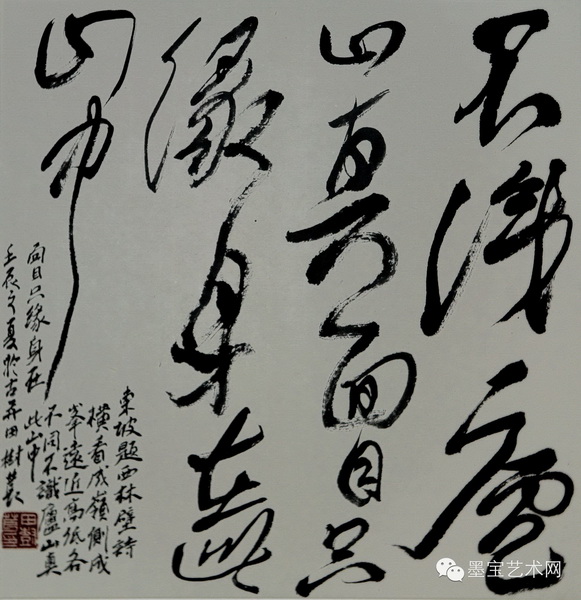 不識廬
山真面目只
緣身在此
山中
東坡題西林壁詩
橫看成嶺側成
峯遠近高低各
不同不識廬山真
面目只緣身在此山中
壬辰之夏於古并田樹萇
墨宝艺术网